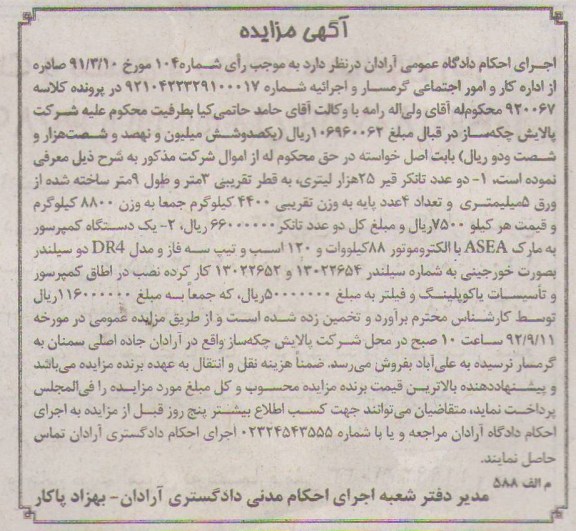 آگهی مزایده
اجرای احکام دادگاه عمومی آرادان درنظر دارد به موجب رأی شماره۱۰۴ مورخ ۹۱/۳/۱۰ صادره
از اداره کار و امور اجتماعی گرمسار و اجرائیه شماره ۹۲۱۰۴۲۲۳۲۹۱۰۰۰۱۷ در پرونده کلاسه
۹۲۰۰۶۷ محکوم‌له آقای ولی‌اله رامه با وکالت آقای حامد حاتمی‌کیا بطرفیت محکوم علیه شرکت
پالایش چکه‌ساز در قبال مبلغ ۱۰۶۹۶۰۰۶۲ریال (یکصدوشش میلیون و نهصد و شصت‌هزار و
شصت ودو ریال) بابت اصل خواسته در حق محکوم له از اموال شرکت مذکور به شرح ذیل معرفی
نموده است، ۱- دو عدد تانکر قیر ۲۵هزار لیتری، به قطر تقریبی ۳متر و طول ۹متر ساخته شده از
ورق ۵میلیمتری و تعداد ۴عدد پایه به وزن تقریبی ۴۴۰۰ کیلوگرم جمعا به وزن ۸۸۰۰ کیلوگرم
و قیمت هر کیلو ۷۵۰۰ریال و مبلغ کل دو عدد تانکر۶۶۰۰۰۰۰۰ریال، ۲- یک دستگاه کمپرسور
به مارک ASEA با الکتروموتور ۸۸کیلووات و ۱۲۰ اسب و تیپ سه فاز و مدل DR4 دو سیلندر
بصورت خورجینی به شماره سیلندر ۱۳۰۲۲۶۵۴ و ۱۳۰۲۲۶۵۲ کار کرده نصب در اطاق کمپرسور
و تأسیسات باکوپلینگ و فیلتر به مبلغ ۵۰۰۰۰۰۰۰ریال، که جمعاً به مبلغ ۱۱۶۰۰۰۰۰۰ریال
توسط کارشناس محترم برآورد و تخمین زده شده است و از طریق مزایده عمومی در مورخه
۹۲/۹/۱۱ ساعت ۱۰ صبح در محل شرکت پالایش چکه‌ساز واقع در آرادان جاده اصلی سمنان به
گرمسار نرسیده به علی‌آباد بفروش می‌رسد. ضمناً هزینه نقل و انتقال به عهده برنده مزایده می‌باشد
و پیشنهاددهنده بالاترین قیمت برنده مزایده محسوب و کل مبلغ مورد مزایده را فی‌المجلس
پرداخت نماید، متقاضیان می‌توانند جهت کسب اطلاع بیشتر پنج روز قبل از مزایده به اجرای
احکام دادگاه آرادان مراجعه و یا با شماره ۰۲۳۲۴۵۴۳۵۵۵ اجرای احکام دادگستری آرادان تماس
حاصل نمایند.
م الف ۵۸۸
مدیر دفتر شعبه اجرای احکام مدنی دادگستری آرادان- بهزاد پاکار